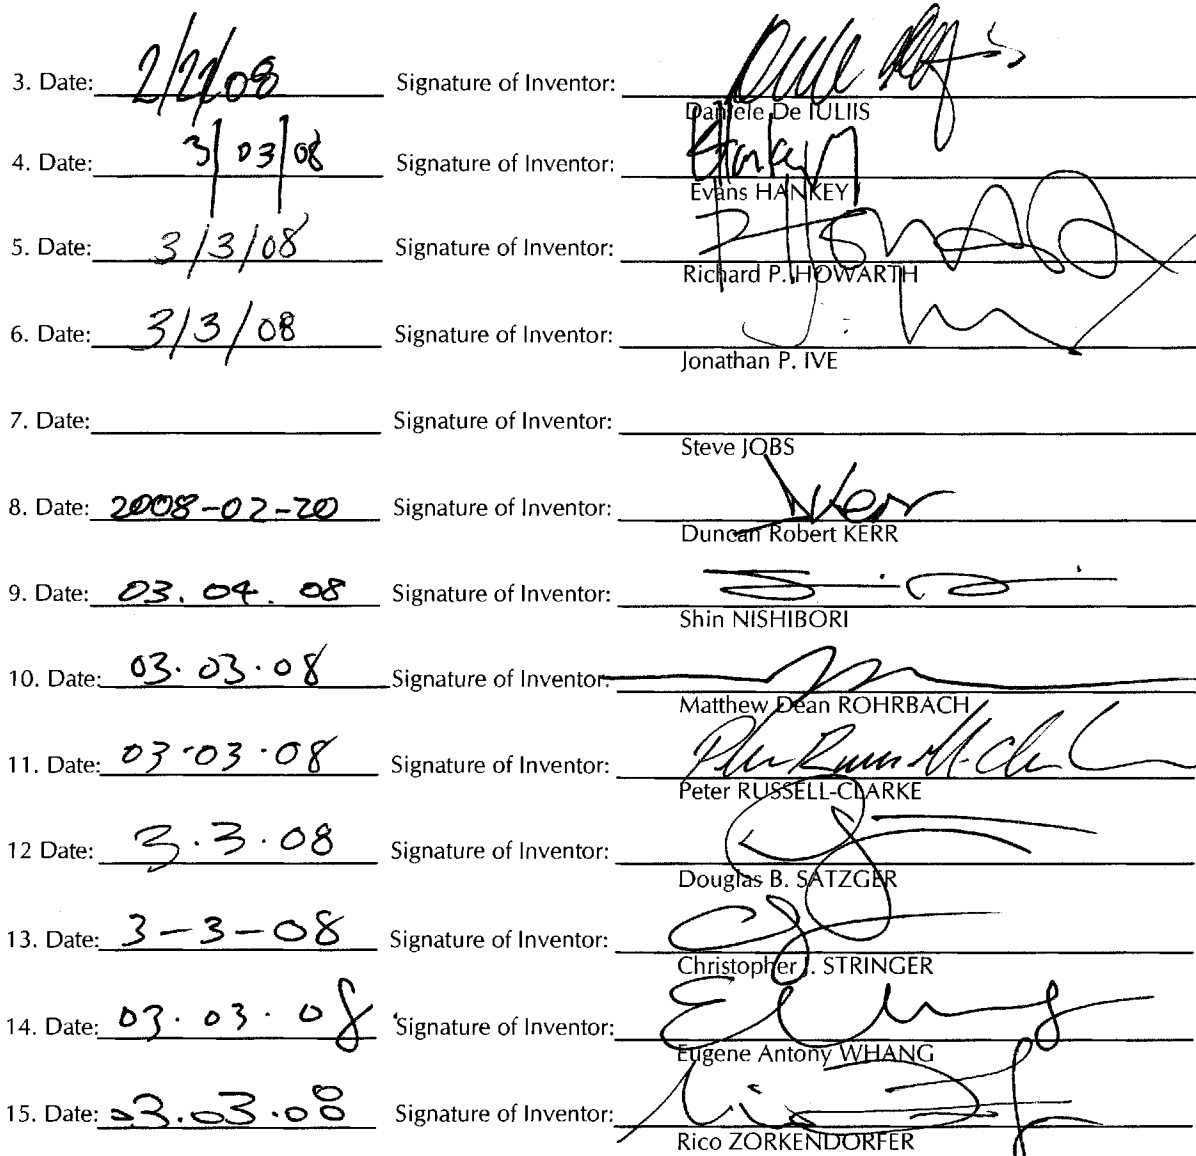 3. Date: 2/21/08 Signature of Inventor:
Daniele De IULIIS
4. Date: 3/03/08 Signature of Inventor: Hankey
Evans HANKEY
5. Date: 3/3/08 Signature of Inventor: Howarth
Richard P. HOWARTH
6. Date: 3/3/08 Signature of Inventor:
Jonathan P. IVE
7. Date: Signature of Inventor:
Steve JOBS
8. Date: 2008-02-20 Signature of Inventor: Kerr
Duncan Robert KERR
9. Date: 03.04.08 Signature of Inventor:
Shin NISHIBORI
10. Date: 03.03.08 Signature of Inventor:
Matthew Dean ROHRBACH
11. Date: 03.03.08 Signature of Inventor: Peter Russell-Clarke
Peter RUSSELL-CLARKE
12 Date: 3.3.08 Signature of Inventor:
Douglas B. SATZGER
13. Date: 3-3-08 Signature of Inventor:
Christopher J. STRINGER
14. Date: 03.03.08 Signature of Inventor:
Eugene Antony WHANG
15. Date: 03.03.08 Signature of Inventor:
Rico ZORKENDORFER